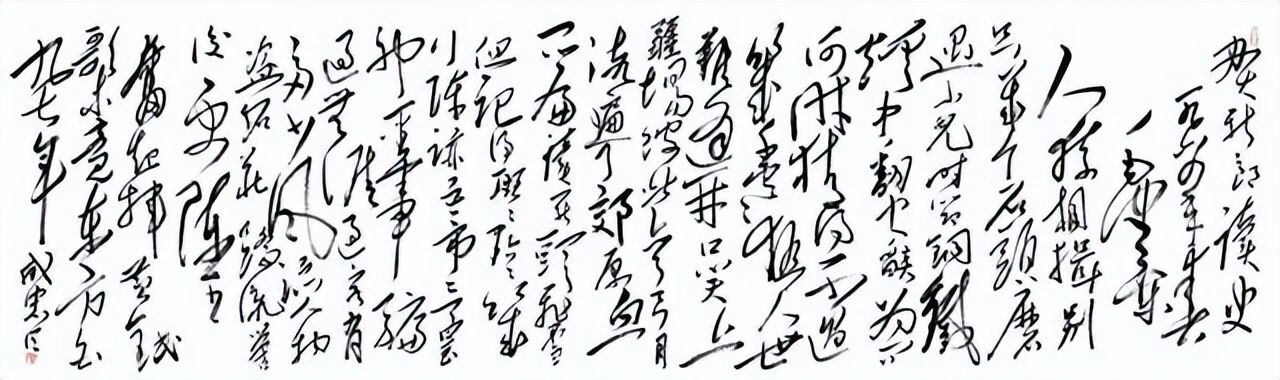 贺新郎读史
一九六四年春
毛泽东
人猿相揖别
只几个石头磨
过小儿时节铜铁
炉中翻火焰为问
何时猜得不过
几千寒热人世
难逢开口笑上
疆场彼此弯弓月
流遍了郊原血
一篇读罢头飞雪
但记得斑斑点点几
行陈迹五帝三皇
神圣事骗
了无涯过客有
多少风流人物
盗跖庄蹻流誉
后更陈王
奋起挥黄钺
歌未竟东方白
九七年